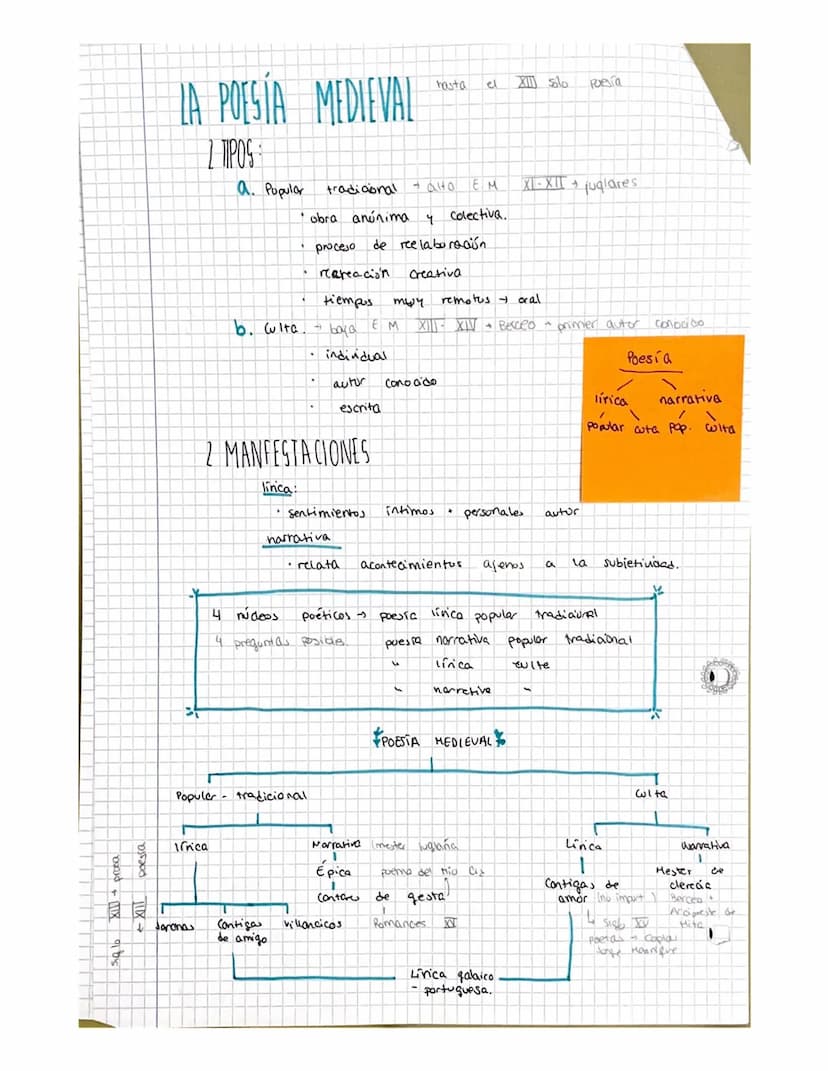 LA POESÍA MEDIEVAL hasta el XIII solo poesía
2 TIPOS:
a. Popular tradicional → alta E M XI-XII → juglares
· obra anónima y colectiva.
· proceso de reelaboración
· recreación creativa
· tiempos muy remotos → oral
b. Culta. → baja E M XIII-XIV → Berceo → primer autor conocido
· individual
· autor conocido
· escrita
Poesía
lírica narrativa
popular culta pop. culta
2 MANFESTACIONES
lírica:
· sentimientos íntimos + personales autor
narrativa
· relata acontecimientos ajenos a la subjetividad.
4 núcleos poéticos → poesía lírica popular tradicional
4 preguntas posibles. poesía narrativa popular tradicional
" lírica culta
" narrativa "
POESÍA MEDIEVAL
Popular - tradicional Culta
lírica Narrativa (mester juglaría Lírica Narrativa
Épica poema del mio Cid)
Cantares de gesta
Romances XV
Jarchas Cantigas de amigo Villancicos
Cantigas de amor (no import.)
↳ Siglo XV
poetas → Copla
Jorge Manrique
Mester de
clerecía
Berceo +
Arcipreste de
Hita
Lírica galaico
- portuguesa.
siglo XIII → prosa
← XIII poesía